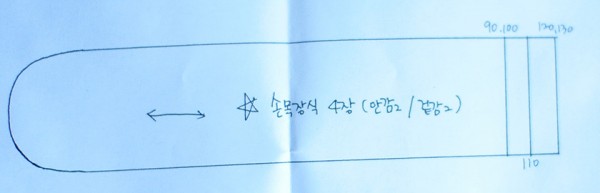 90.100 120,130
☆ 손목장식 4장 (안감2 / 겉감2)
110